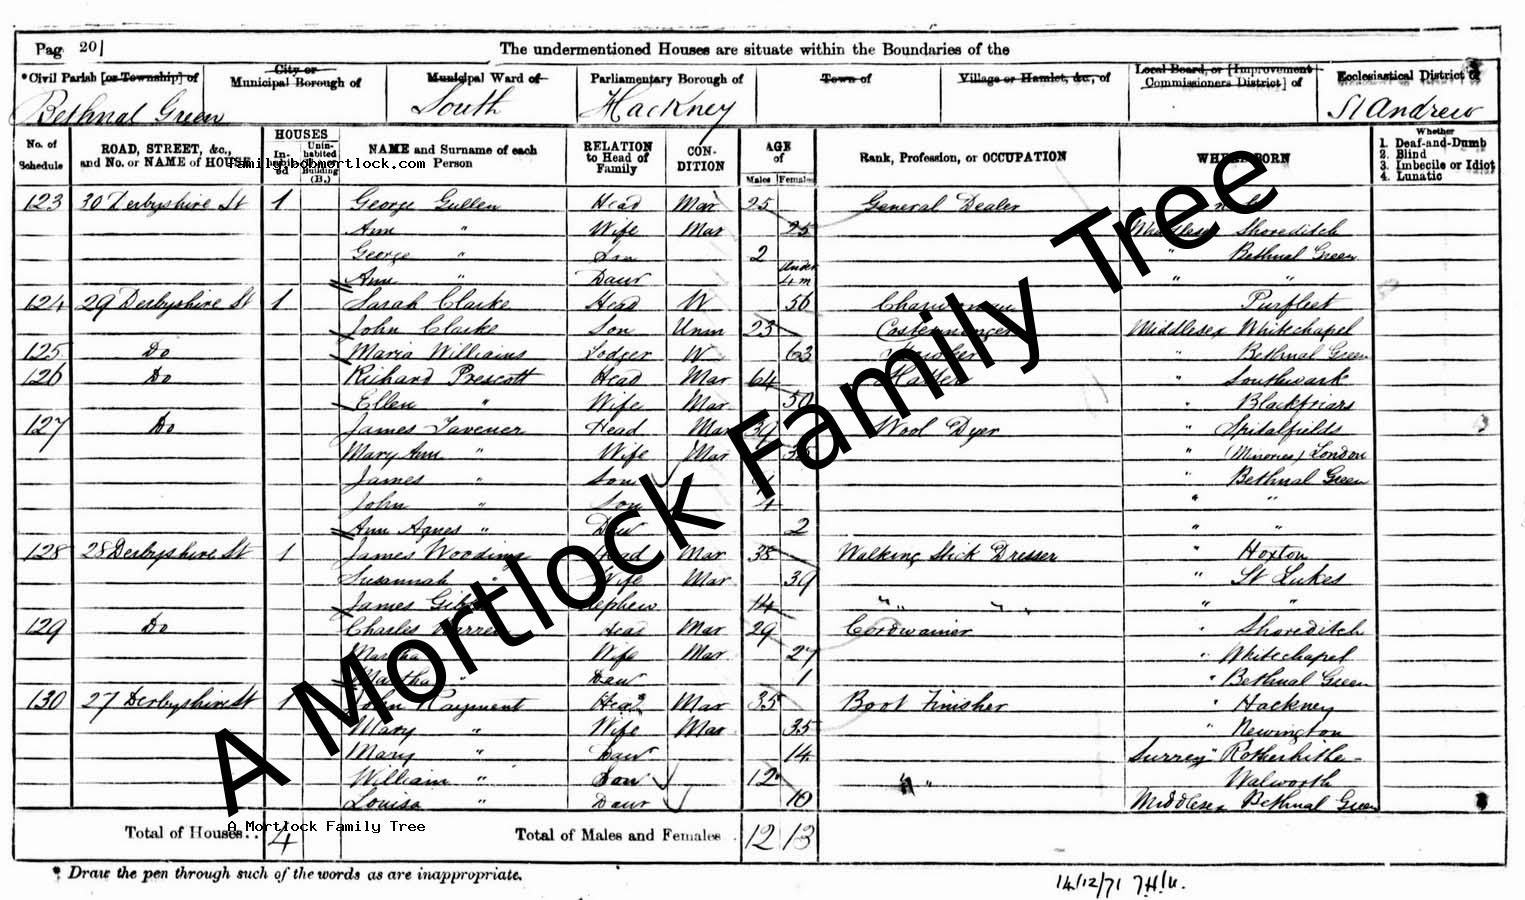 Pag 20
The undermentioned Houses are situate within the Boundaries of the
*Civil Parish [or Township] of
City or Municipal Borough of
Municipal Ward of
Parliamentary Borough of
Town of
Village or Hamlet, &c., of
Local Board, or [Improvement Commissioners District] of
Ecclesiastical District of
Bethnal Green South Hackney St Andrew
No. of Schedule
ROAD, STREET, &c., and No. or NAME of HOUSE
HOUSES
In-
ed
Unin-habited Building (B.)
NAME and Surname of each Person
RELATION to Head of Family
CON-DITION
AGE of
Males Females
Rank, Profession, or OCCUPATION
WHERE BORN
Whether
1. Deaf-and-Dumb
2. Blind
3. Imbecile or Idiot
4. Lunatic
family.bobmortlock.com
123 30 Derbyshire St 1 George Gullen Head Mar 25 General Dealer
Ann " Wife Mar 25 Middlesex Shoreditch
George " Son 2 " Bethnal Green
Ann " Daur Under 4 m " "
124 29 Derbyshire St 1 Sarah Clarke Head W 56 Purfleet
John Clarke Son Unm 23 Costermonger Middlesex Whitechapel
125 Do Maria Williams Lodger W 63 " Bethnal Green
126 Do Richard Prescott Head Mar 64 Hatter " Southwark
Ellen " Wife Mar 50 " Blackfriars
127 Do James Tavener Head Mar 39 Wool Dyer " Spitalfields
Mary Ann " Wife Mar " (Minories) London
James " Son " Bethnal Green
John " Son 4 " "
Ann Agnes " Daur 2 " "
128 28 Derbyshire St 1 James Wooding Head Mar 38 Walking Stick Dresser " Hoxton
Susannah " Wife Mar 39 " St Lukes
James Nephew 14 " " " "
129 Do Charles Warren Head Mar 29 Cordwainer " Shoreditch
Martha Wife Mar 27 " Whitechapel
Martha " Daur 1 " Bethnal Green
130 27 Derbyshire St 1 John Rayment Head Mar 35 Boot Finisher " Hackney
Mary " Wife Mar 35 " Newington
Mary " Daur 14 Surrey Rotherhithe
William " Son 12 " Walworth
Louisa " Daur 10 Middlesex Bethnal Green
Total of Houses.. 4 Total of Males and Females 12 13
A Mortlock Family Tree
* Draw the pen through such of the words as are inappropriate.
14/12/71
A Mortlock Family Tree